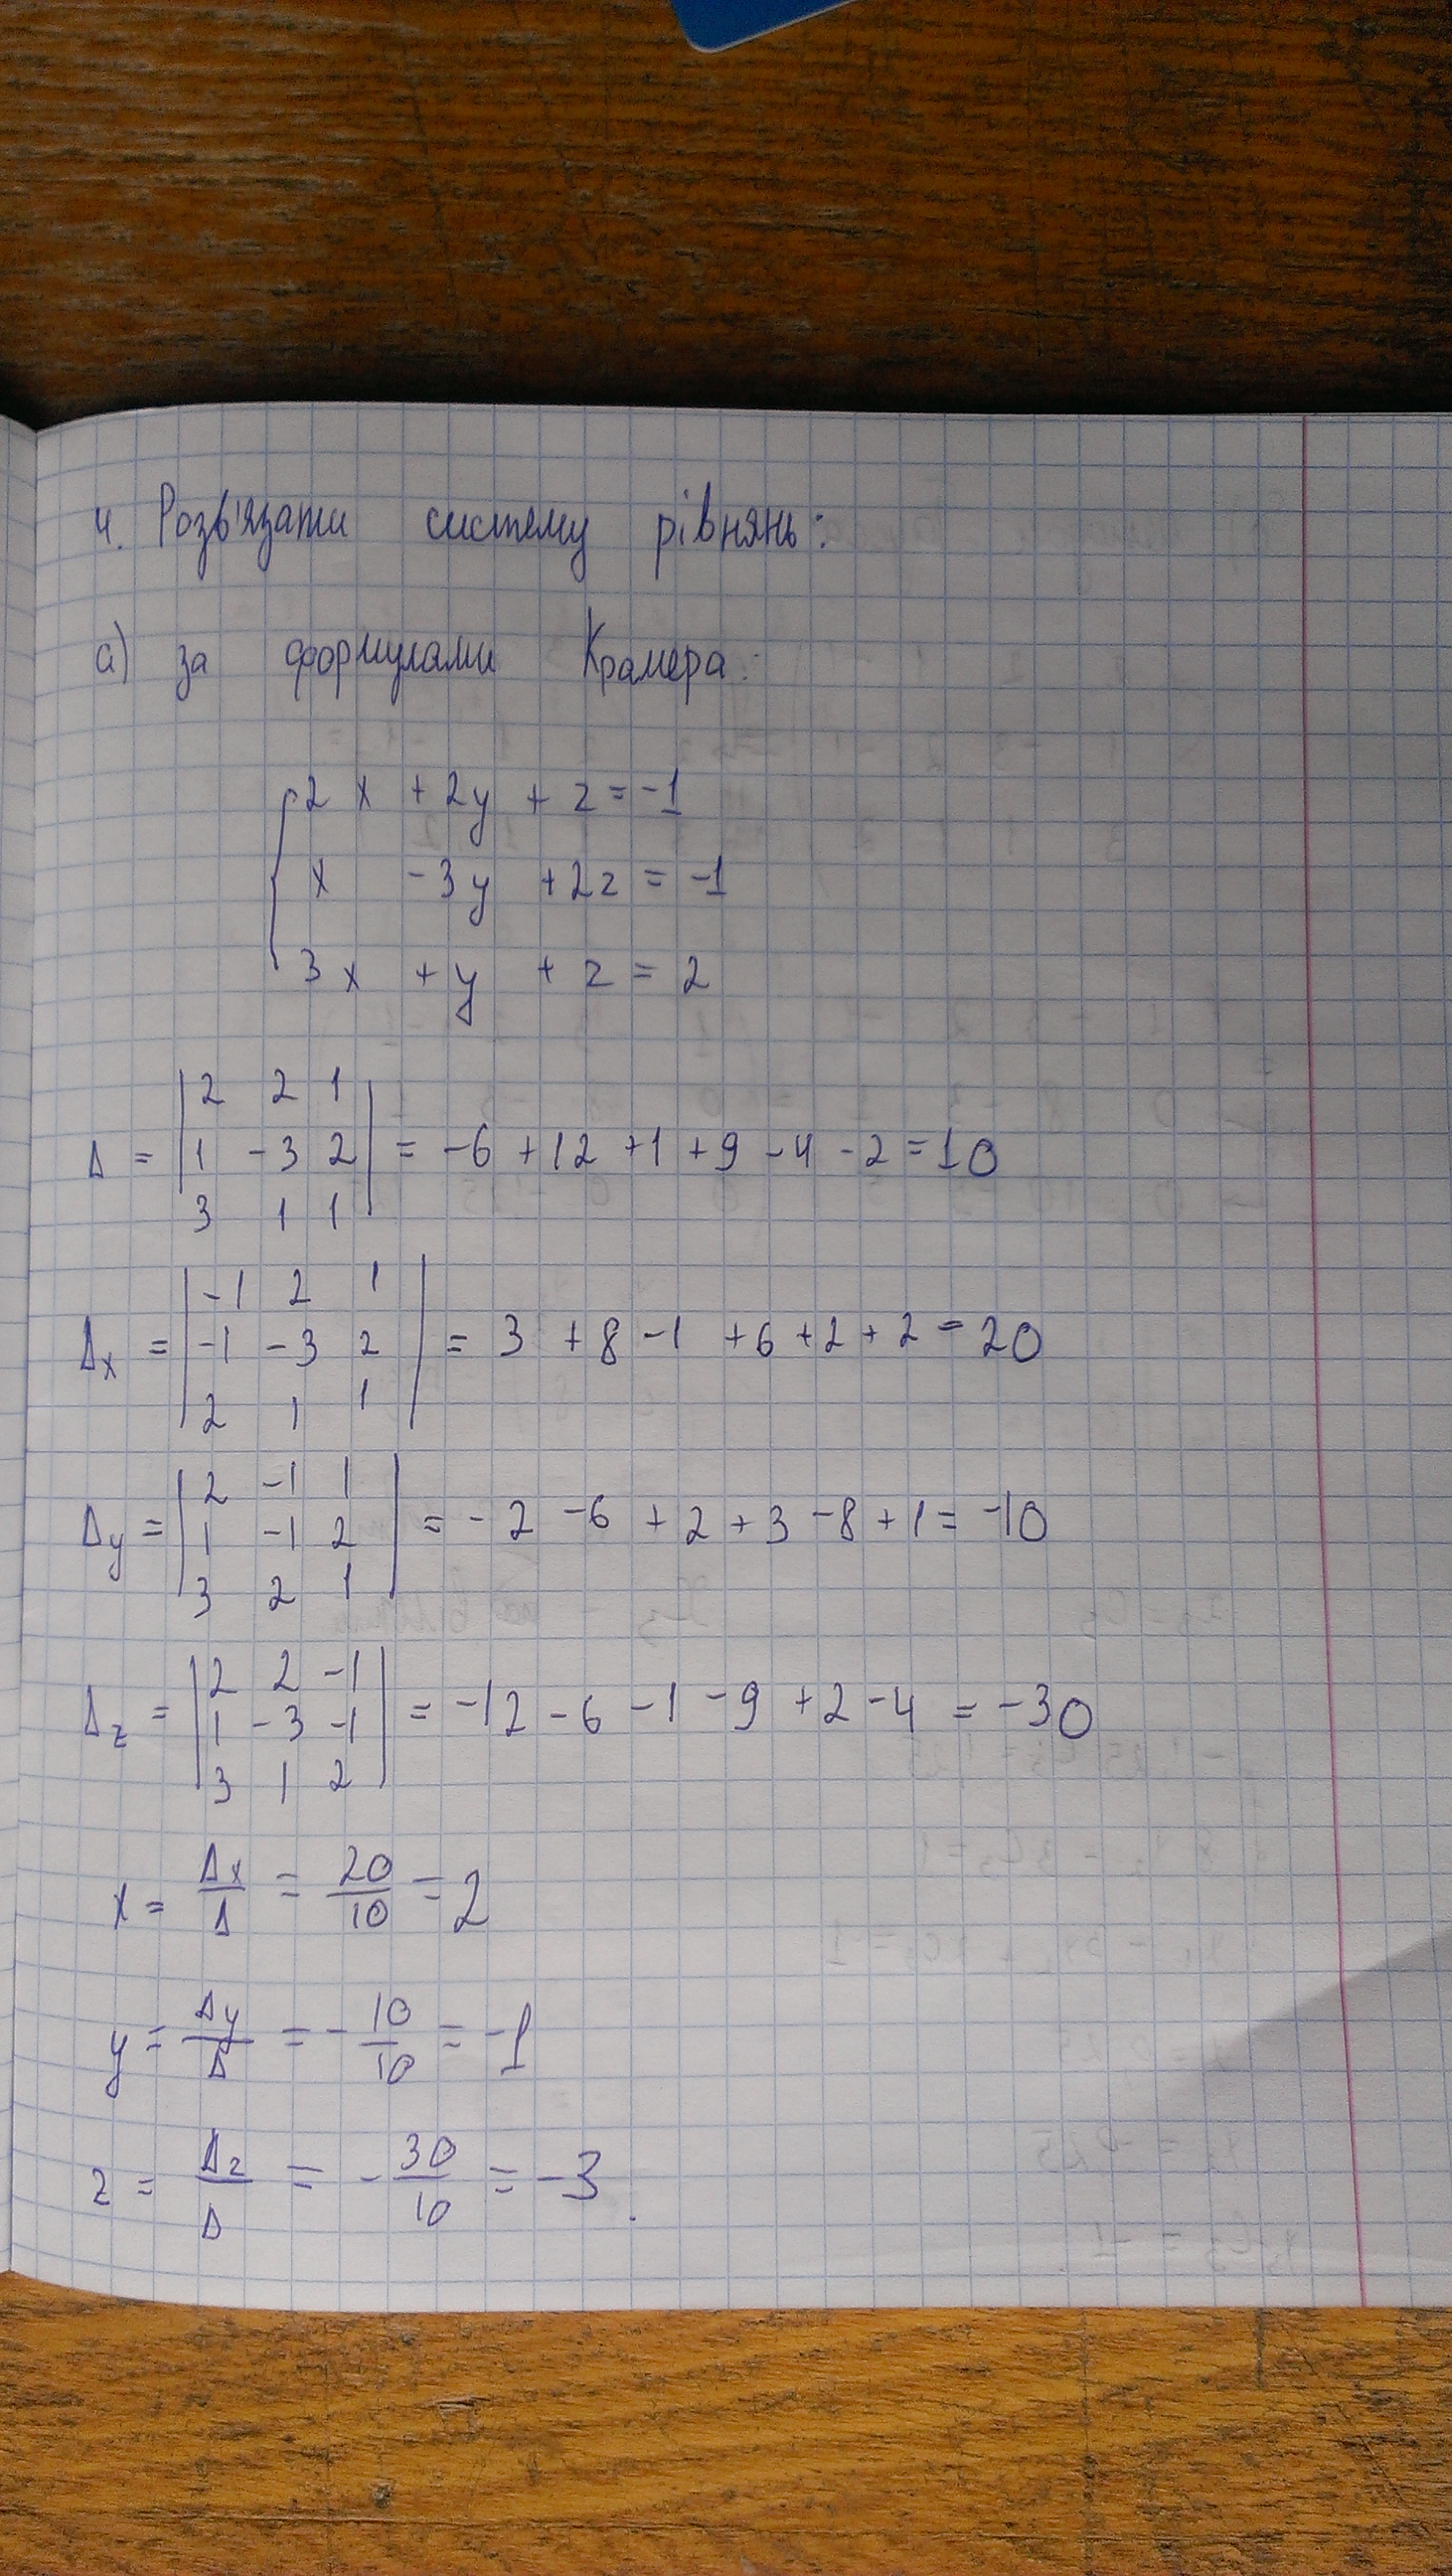 4. Розв'язати систему рівнянь:
а) за формулами Крамера:
2x + 2y + z = -1
x - 3y + 2z = -1
3x + y + z = 2
2 2 1
Δ = 1 -3 2 = -6 + 12 + 1 + 9 - 4 - 2 = 10
3 1 1
-1 2 1
Δx = -1 -3 2 = 3 + 8 - 1 + 6 + 2 + 2 = 20
2 1 1
2 -1 1
Δy = 1 -1 2 = -2 - 6 + 2 + 3 - 8 + 1 = -10
3 2 1
2 2 -1
Δz = 1 -3 -1 = -12 - 6 - 1 - 9 + 2 - 4 = -30
3 1 2
x = Δx/Δ = 20/10 = 2
y = Δy/Δ = - 10/10 = -1
z = Δz/Δ = - 30/10 = -3.